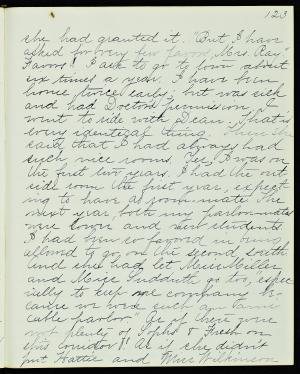 123
she had granted it. "But I have
asked for very few favors, Mrs. Ray"
Favors! I ask to go to town about
six times a year. I have been
home twice early, but was sick
and had Doctor's permission. I
went to ride with Dean. That is
every identical thing. Then she
said that I had always had
such nice rooms. Yes, I was on
the first two years. I had the out
side room the first year, expect
ing to have a room-mate. The
next year, both my parlor-mates
were down and new students.
I had been so favored in being
allowed to go on the second south
and she had let Miss
and Miss go too, espec
ially to keep me company be
cause we had such an "ami
cable parlor" As if there were
not plenty of Sophs & Fresh on
this corridor! As if she didn't
put Hattie and Miss Wilkinson